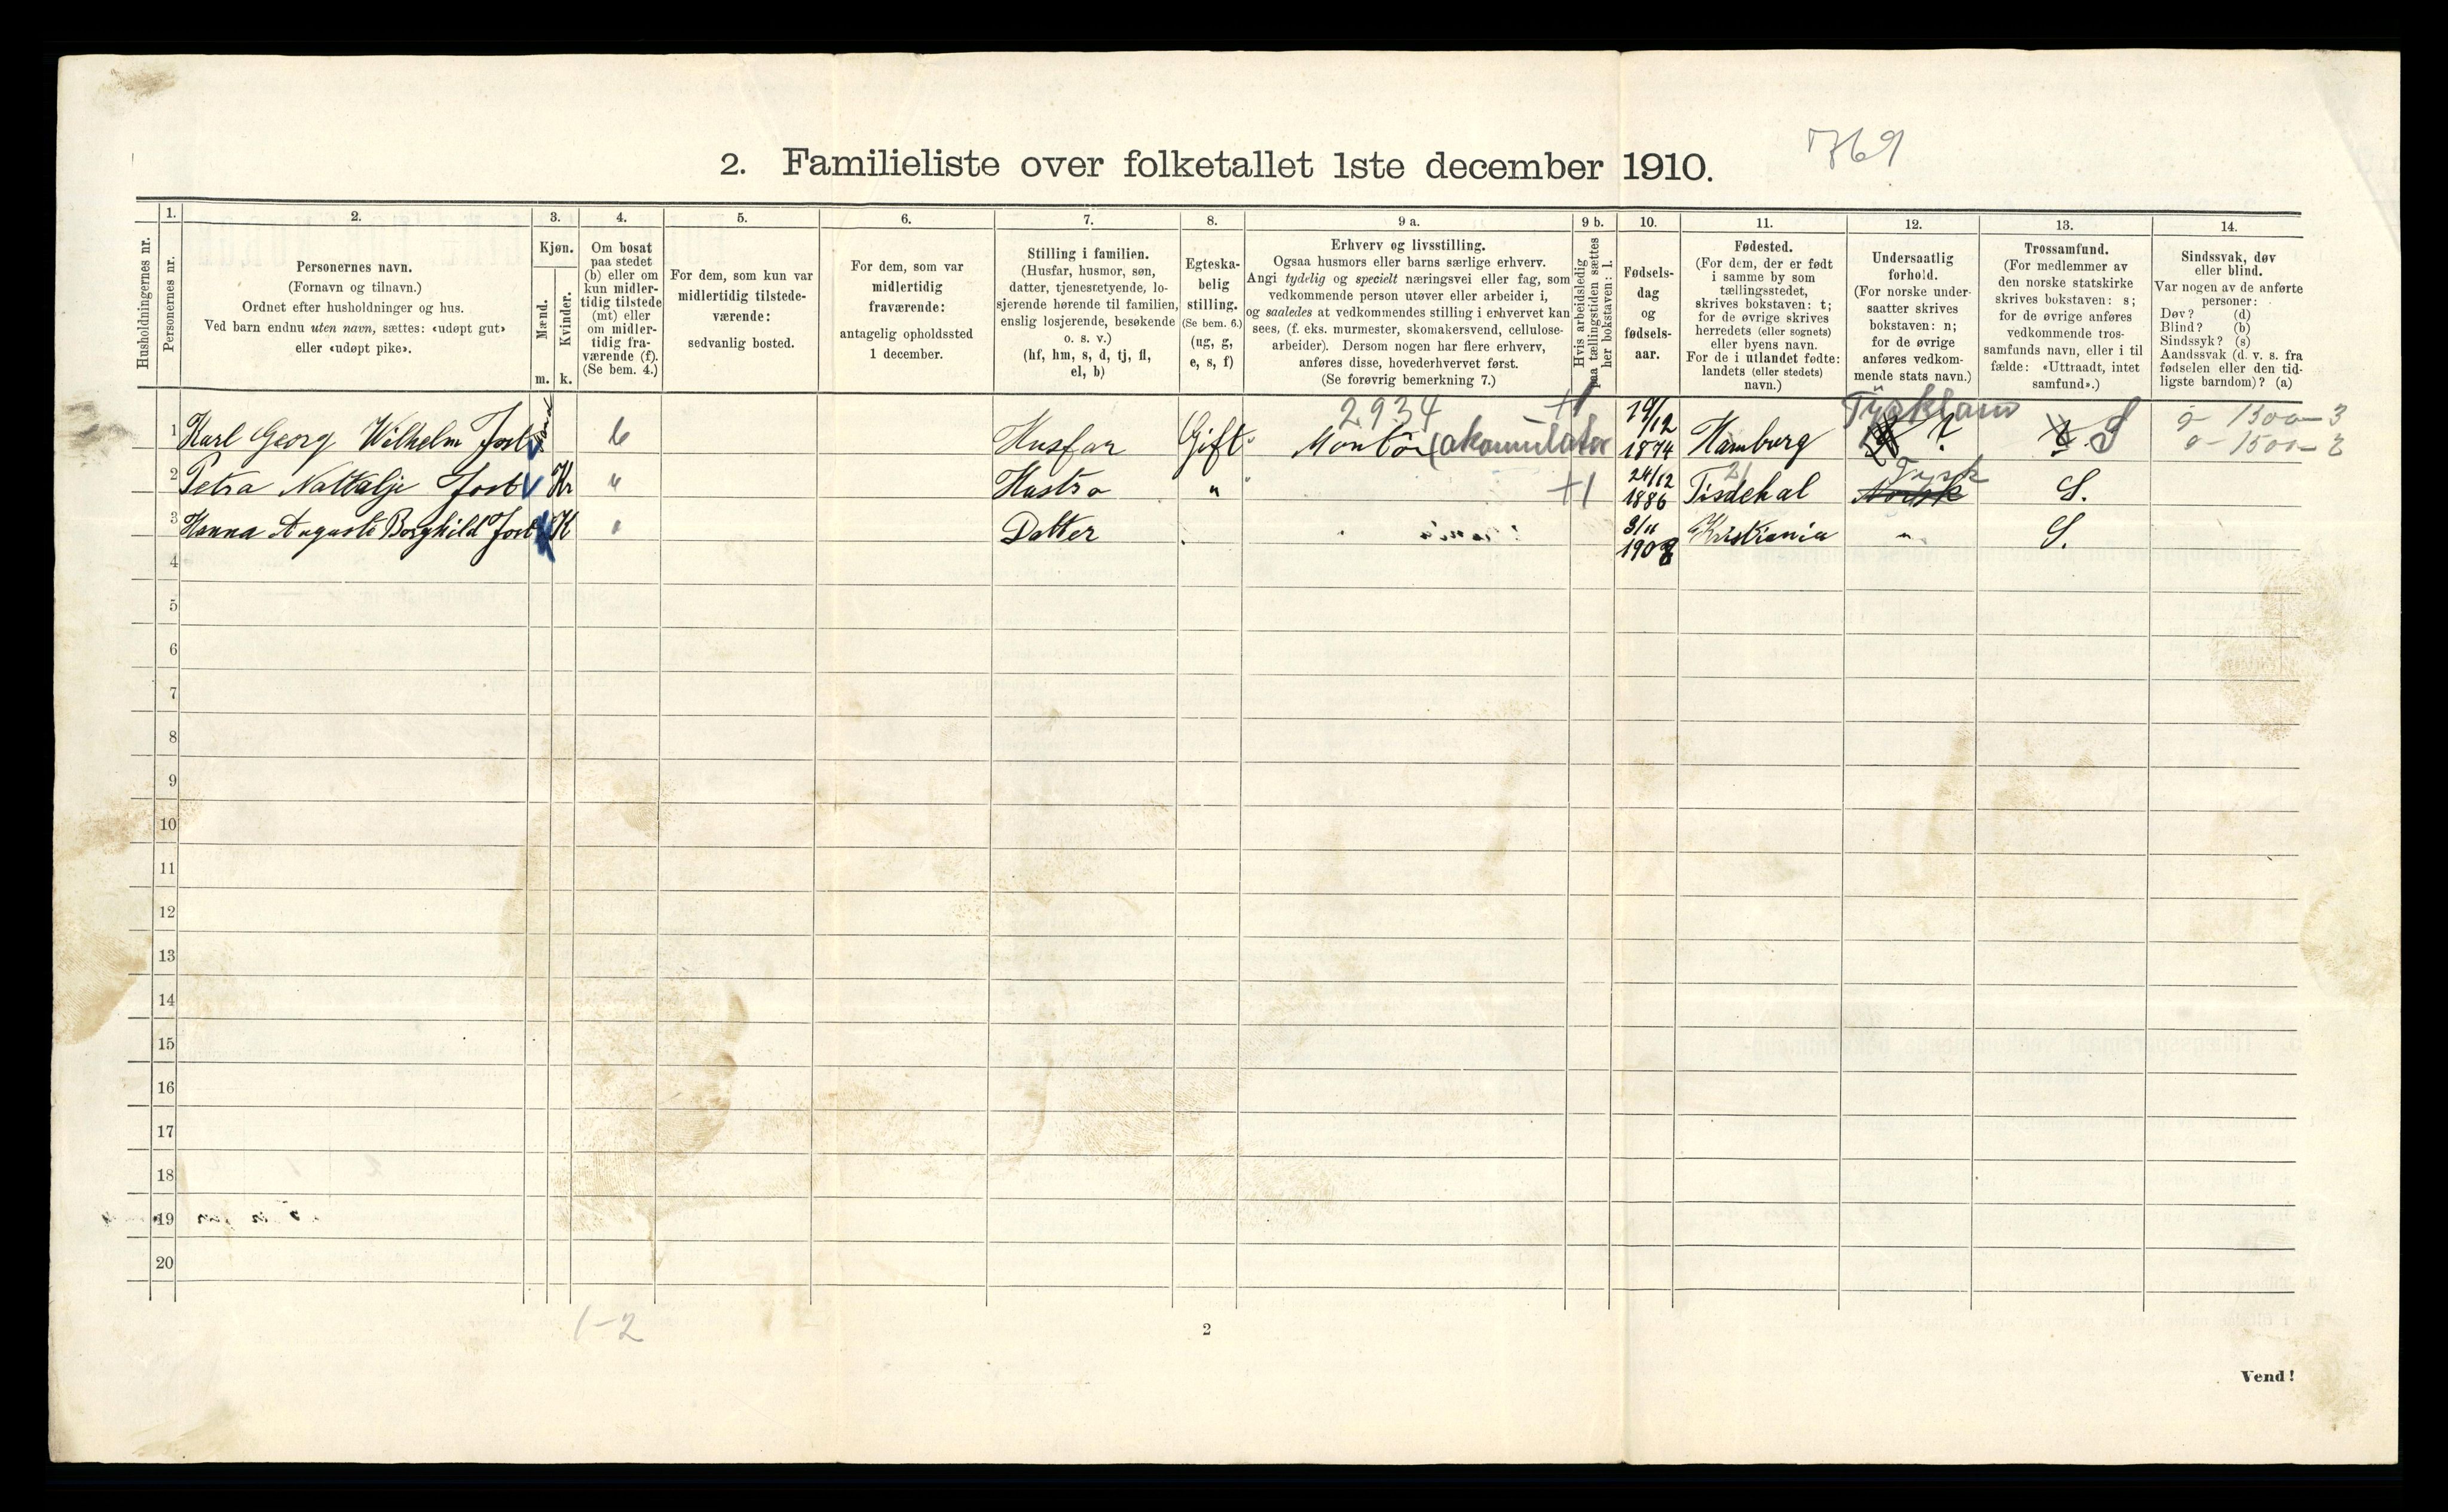 769
2. Familieliste over folketallet 1ste december 1910.
Husholdningernes nr.
1.
Personernes nr.
2.
Personernes navn.
(Fornavn og tilnavn.)
Ordnet efter husholdninger og hus.
Ved barn endnu uten navn, sættes: «udøpt gut»
eller «udøpt pike».
3.
Kjøn.
Mænd.
Kvinder.
m. k.
4.
Om bosat
paa stedet
(b) eller om
kun midler-
tidig tilstede
(mt) eller
om midler-
tidig fra-
værende (f).
(Se bem. 4.)
5.
For dem, som kun var
midlertidig tilstede-
værende:
sedvanlig bosted.
6.
For dem, som var
midlertidig
fraværende:
antagelig opholdssted
1 december.
7.
Stilling i familien.
(Husfar, husmor, søn,
datter, tjenesretyende, lo-
sjerende hørende til familien,
enslig losjerende, besøkende
o. s. v.)
(hf, hm, s, d, tj, fl,
el, b)
8.
Egteska-
belig
stilling.
(Se bem. 6.)
(ug, g,
e, s, f)
9 a.
Erhverv og livsstilling.
Ogsaa husmors eller barns særlige erhverv.
Angi tydelig og specielt næringsvei eller fag, som
vedkommende person utøver eller arbeider i,
og saaledes at vedkommendes stilling i erhvervet kan
sees, (f. eks. murmester, skomakersvend, cellulose-
arbeider). Dersom nogen har flere erhverv,
anføres disse, hovederhvervet først.
(Se forøvrig bemerkning 7.)
9 b.
Hvis arbeidsledig
paa tællingstiden sættes
her bokstaven: l.
10.
Fødsels-
dag
og
fødsels-
aar.
11.
Fødested.
(For dem, der er født
i samme by som
tællingsstedet,
skrives bokstaven: t;
for de øvrige skrives
herredets (eller sognets)
eller byens navn.
For de i utlandet fødte:
landets (eller stedets)
navn.)
12.
Undersaatlig
forhold.
(For norske under-
saatter skrives
bokstaven: n;
for de øvrige
anføres vedkom-
mende stats navn.)
13.
Trossamfund.
(For medlemmer av
den norske statskirke
skrives bokstaven: s;
for de øvrige anføres
vedkommende tros-
samfunds navn, eller i til
fælde: «Uttraadt, intet
samfund».)
14.
Sindssvak, døv
eller blind.
Var nogen av de anførte
personer:
Døv? (d)
Blind? (b)
Sindssyk? (s)
Aandssvak (d. v. s. fra
fødselen eller den tid-
ligste barndom)? (a)
2934 +1 Tyskland
1 Karl Georg Wilhelm Jost b Husfar Gift Montör (akumulator 19/12 1874 Hamburg ? S 1300-3
1500-2
2 Petra Nattalje Jost Kv " Hustro " +1 24/12 1886 Tisdekal Norsk Tysk S.
3 Hanna Auguste Borghild Jost K " Datter 3/11 1908 Kristiania " S.
4
5
6
7
8
9
10
11
12
13
14
15
16
17
18
19
20
1-2
2
Vend!